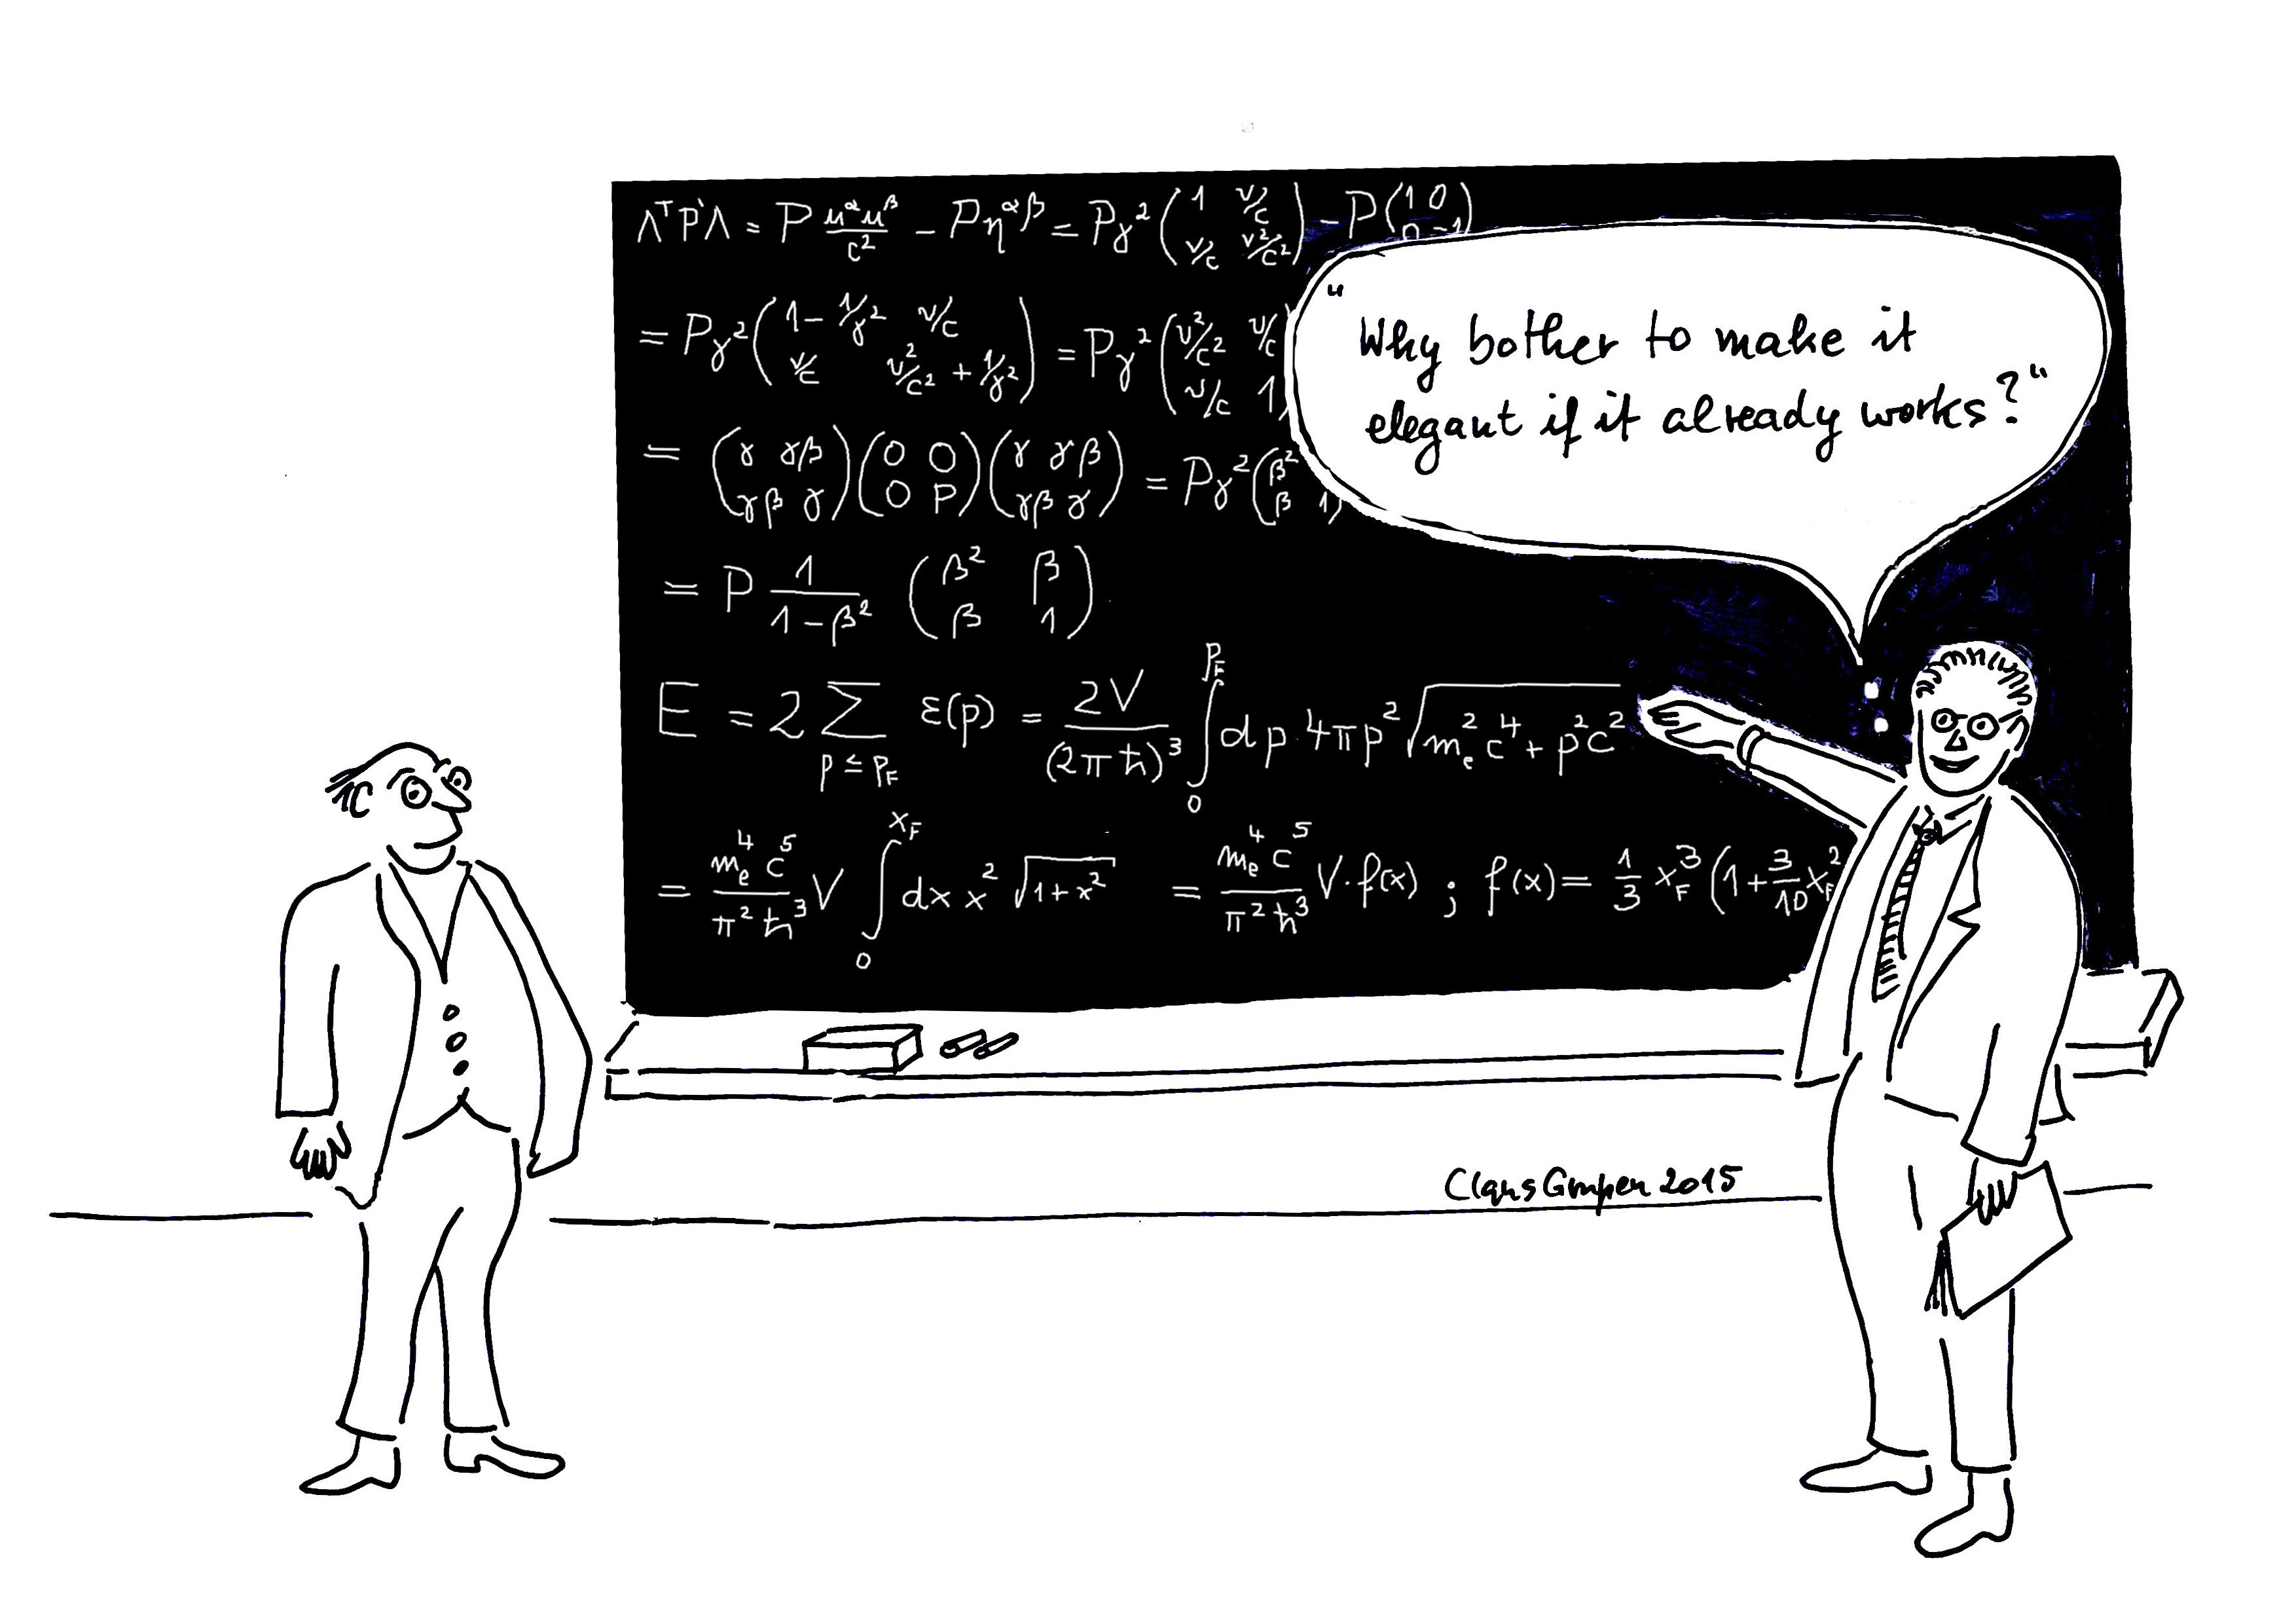 Λᵀ P` Λ = P u^α u^β / c² − P η^{αβ} = P γ² ( 1 v/c ; v/c v²/c² ) − P ( 1 0 ; 0 −1 )
= P γ² ( 1 − 1/γ² v/c ; v/c v²/c² + 1/γ² ) = P γ² ( v²/c² v/c ; v/c 1 )
= ( γ γβ ; γβ γ ) ( 0 0 ; 0 P ) ( γ γβ ; γβ γ ) = P γ² ( β² ; β 1 )
= P 1 / (1 − β²) ( β² β ; β 1 )
E = 2 Σ_{p ≤ p_F} ε(p) = 2V / (2πħ)³ ∫₀^{p_F} dp 4πp² √(m_e² c⁴ + p² c²)
= m_e⁴ c⁵ / π² ħ³ V ∫₀^{x_F} dx x² √(1 + x²) = m_e⁴ c⁵ / π² ħ³ V · f(x) ; f(x) = 1/3 x_F³ ( 1 + 3/10 x_F²
"Why bother to make it
elegant if it already works?"
Claus Grupen 2015